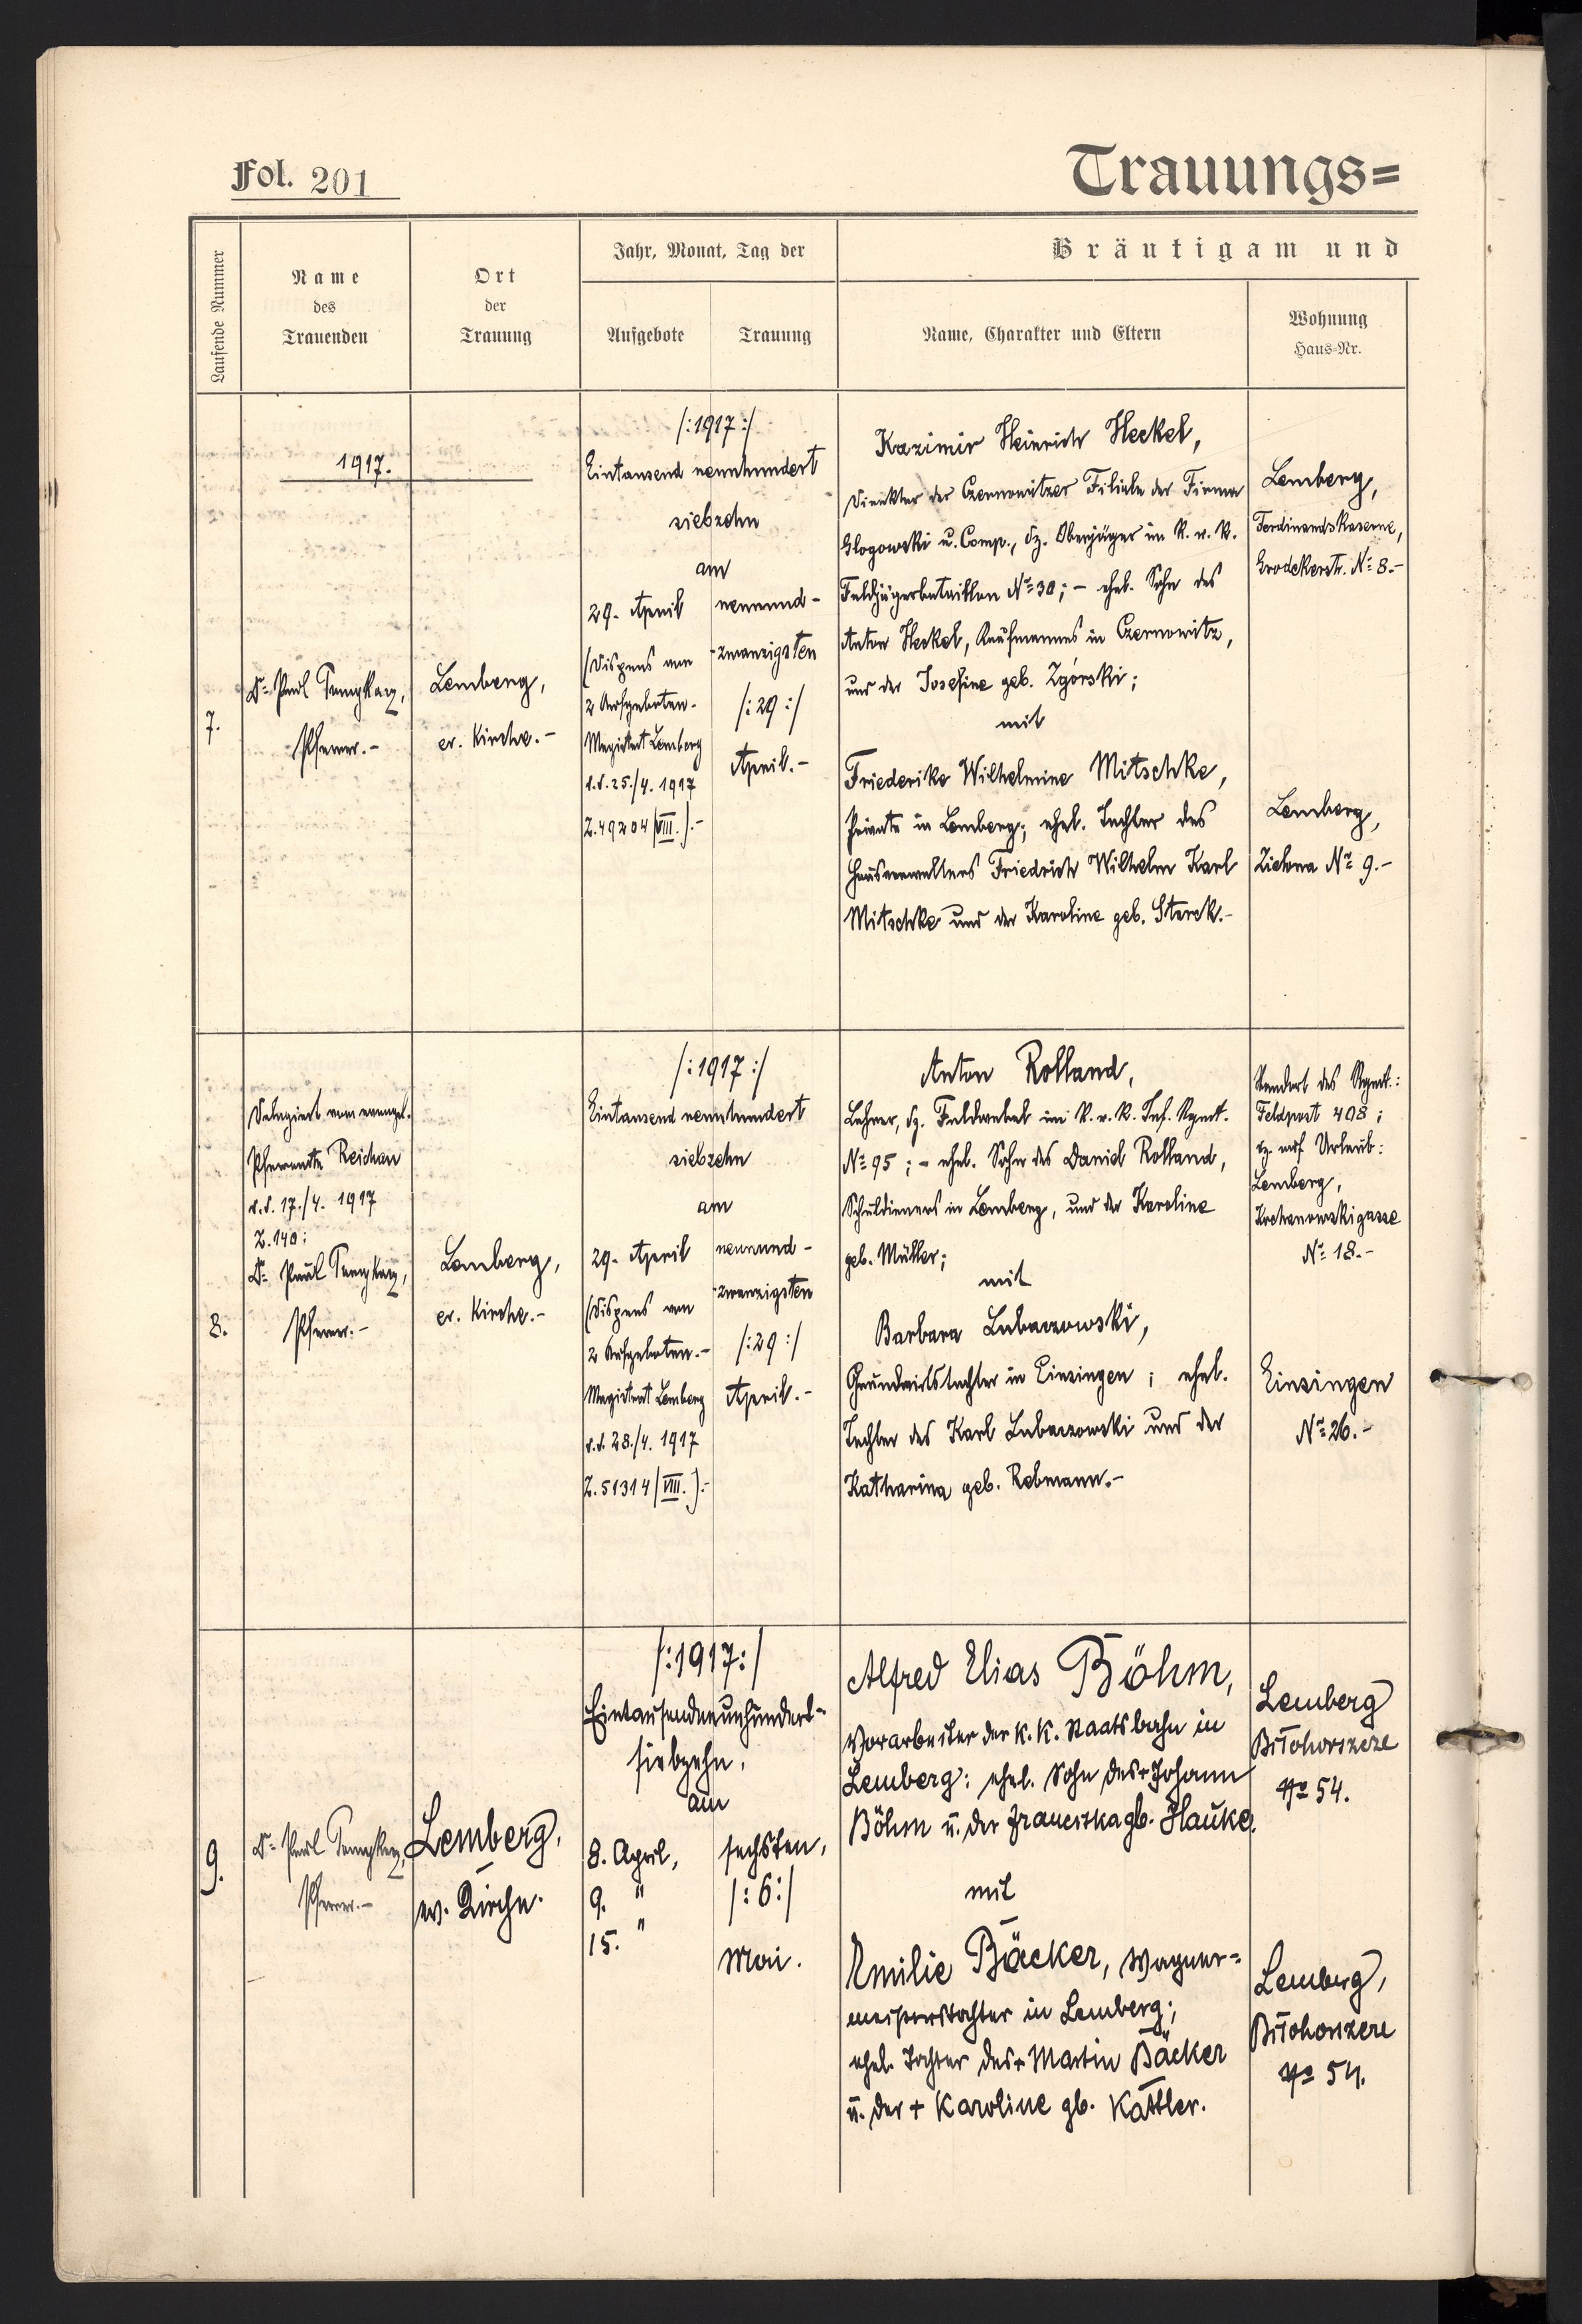 Fol. 201
Trauungs=
Laufende Nummer
Name
des
Trauenden
Ort
der
Trauung
Jahr, Monat, Tag der
Aufgebote
Trauung
Bräutigam und
Name, Charakter und Eltern
Wohnung
Haus=Nr.
1917.
7.
Dr. Paul
Pfarrer.-
Lemberg,
ev. Kirche.-
/:1917:/
Eintausend neunhundert
siebzehn
am
29. April
(Dispens von
2 Aufgeboten.
Magistrat Lemberg
d.d. 25./4. 1917
Z. 49204/VIII.).-
neunund-
-zwanzigsten
/:29:/
April.-
Kazimir Heinrich Heckel,
Direktor der Czernowitzer Filiale der Firma
Glogowski u. Comp., dz. Oberjäger im K. u. K.
Feldjägerbataillon No 30; - ehel. Sohn des
Anton Heckel, Kaufmannes in Czernowitz,
und der Josefine geb. Zgórski;
mit
Friederike Wilhelmine Mitschke,
Private in Lemberg; ehel. Tochter des
Hausverwalters Friedrich Wilhelm Karl
Mitschke und der Karoline geb. Sterck.-
Lemberg,
Ferdinandskaserne,
Grodekerstr. No 8.-
Lemberg,
Zielona No 9.-
8.
Delegiert vom evangel.
Pfarramte Reichau
d.d. 17./4. 1917
Z. 140:
Dr. Paul
Pfarrer.-
Lemberg,
ev. Kirche.-
/:1917:/
Eintausend neunhundert
siebzehn
am
29. April
(Dispens von
2 Aufgeboten.-
Magistrat Lemberg
d.d. 28./4. 1917
Z. 51314/VIII.).-
neunund-
-zwanzigsten
/:29:/
April.-
Anton Rolland,
Lehrer, dz. Feldwebel im K. u. K. Inf. Rgmt.
No 95; - ehel. Sohn des Daniel Rolland,
Schuldieners in Lemberg, und der Karoline
geb. Müller;
mit
Barbara Lubaczowski,
Grundwirtstochter in Einsingen; ehel.
Tochter des Karl Lubaczowski und der
Katharina geb. Rebmann.-
Standort des Rgmt.:
Feldpost 408;
dz. auf Urlaub:
Lemberg,
Kochanowskigasse
No 18.-
Einsingen
No 26.-
9.
Dr. Paul
Pfarrer.-
Lemberg,
ev. Kirche.
/:1917:/
Eintausendneunhundert-
siebzehn,
am
8. April,
9. "
15. "
sechsten,
/:6:/
Mai.
Alfred Elias Böhm,
Vorarbeiter der K. K. Staatsbahn in
Lemberg: ehel. Sohn des + Johann
Böhm u. der Franciska gb. Hauke.
mit
Emilie Bäcker, Wagner=
meisterstochter in Lemberg;
ehel. Tochter des + Martin Bäcker
u. der + Karoline gb. Kattler.
Lemberg
No 54.
Lemberg,
No 54.